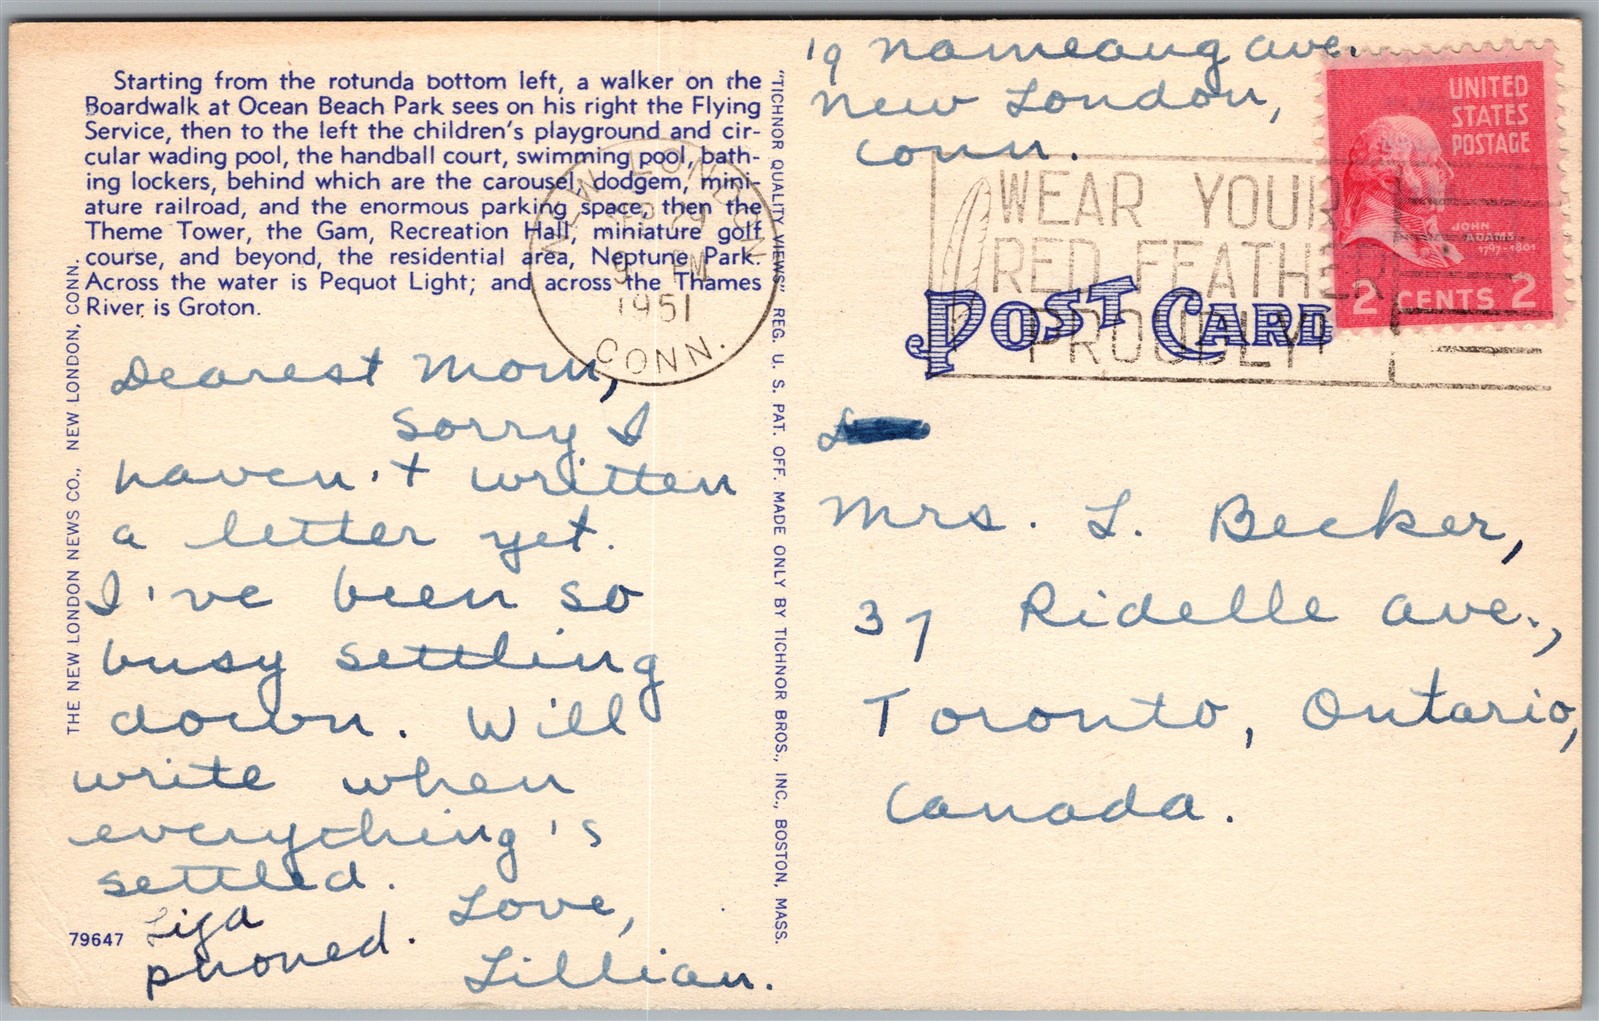 Starting from the rotunda bottom left, a walker on the
Boardwalk at Ocean Beach Park sees on his right the Flying
Service, then to the left the children's playground and cir-
cular wading pool, the handball court, swimming pool, bath-
ing lockers, behind which are the carousel, dodgem, mini-
ature railroad, and the enormous parking space, then the
Theme Tower, the Gam, Recreation Hall, miniature golf
course, and beyond, the residential area, Neptune Park.
Across the water is Pequot Light; and across the Thames
River is Groton.
THE NEW LONDON NEWS CO., NEW LONDON, CONN.
Dearest Mom,
Sorry I
haven't written
a letter yet.
I've been so
busy settling
down. Will
write when
everything's
settled.
Love,
Lillian.
phoned.
79647
"TICHNOR QUALITY VIEWS" REG. U. S. PAT. OFF. MADE ONLY BY TICHNOR BROS., INC., BOSTON, MASS.
NEW LONDON
29
PM
1951
CONN.
19 Nameaug Ave.
New London,
Conn.
WEAR YOUR
RED FEATHER
PROUDLY
UNITED
STATES
POSTAGE
JOHN
ADAMS
1797-1801
2 CENTS 2
POST CARD
Mrs. L. Becker,
37 Ridelle Ave.,
Toronto, Ontario,
Canada.